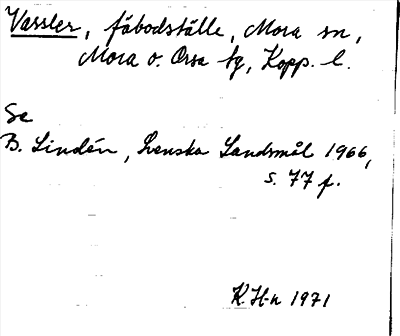 Vassler, fäbodställe, Mora sn,
Mora o. Orsa tg, Kopp. l.
Se
B. Lindén, Svenska Landsmål 1966,
s. 77 f.
K. H-n 1971